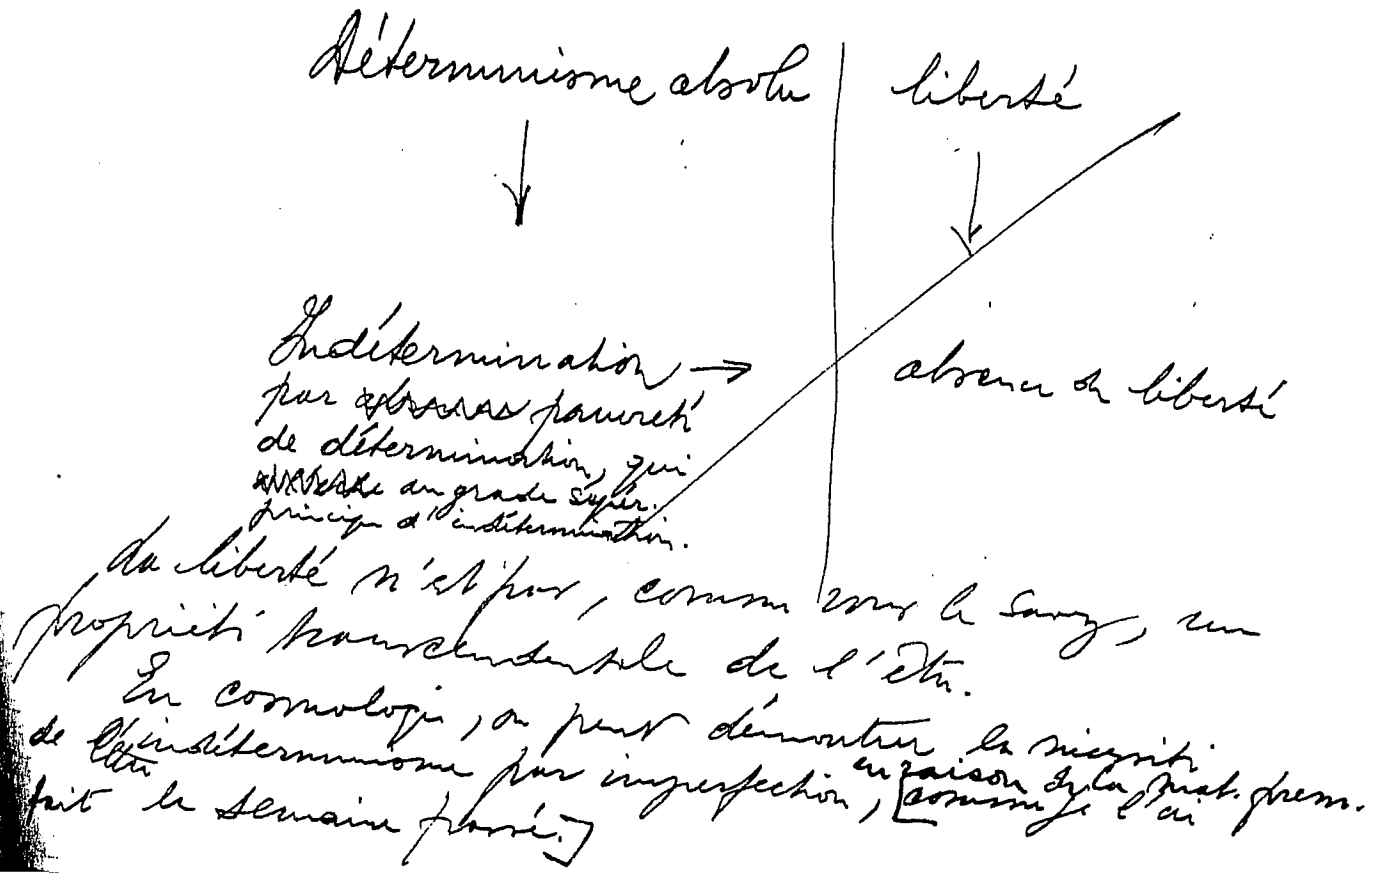 Déterminisme absolu | liberté
↓ ↓
Indétermination → absence de liberté
par pauvreté
de détermination, qui
au grade supér.
principe d'indétermination.
La liberté n'est pas, comme vous le savez, une
propriété transcendentale de l'être.
En cosmologie, on peut démontrer la nécessité
de l'indéterminisme par imperfection, en raison de la mat. prem.
[comme je l'ai
fait la semaine passée.]